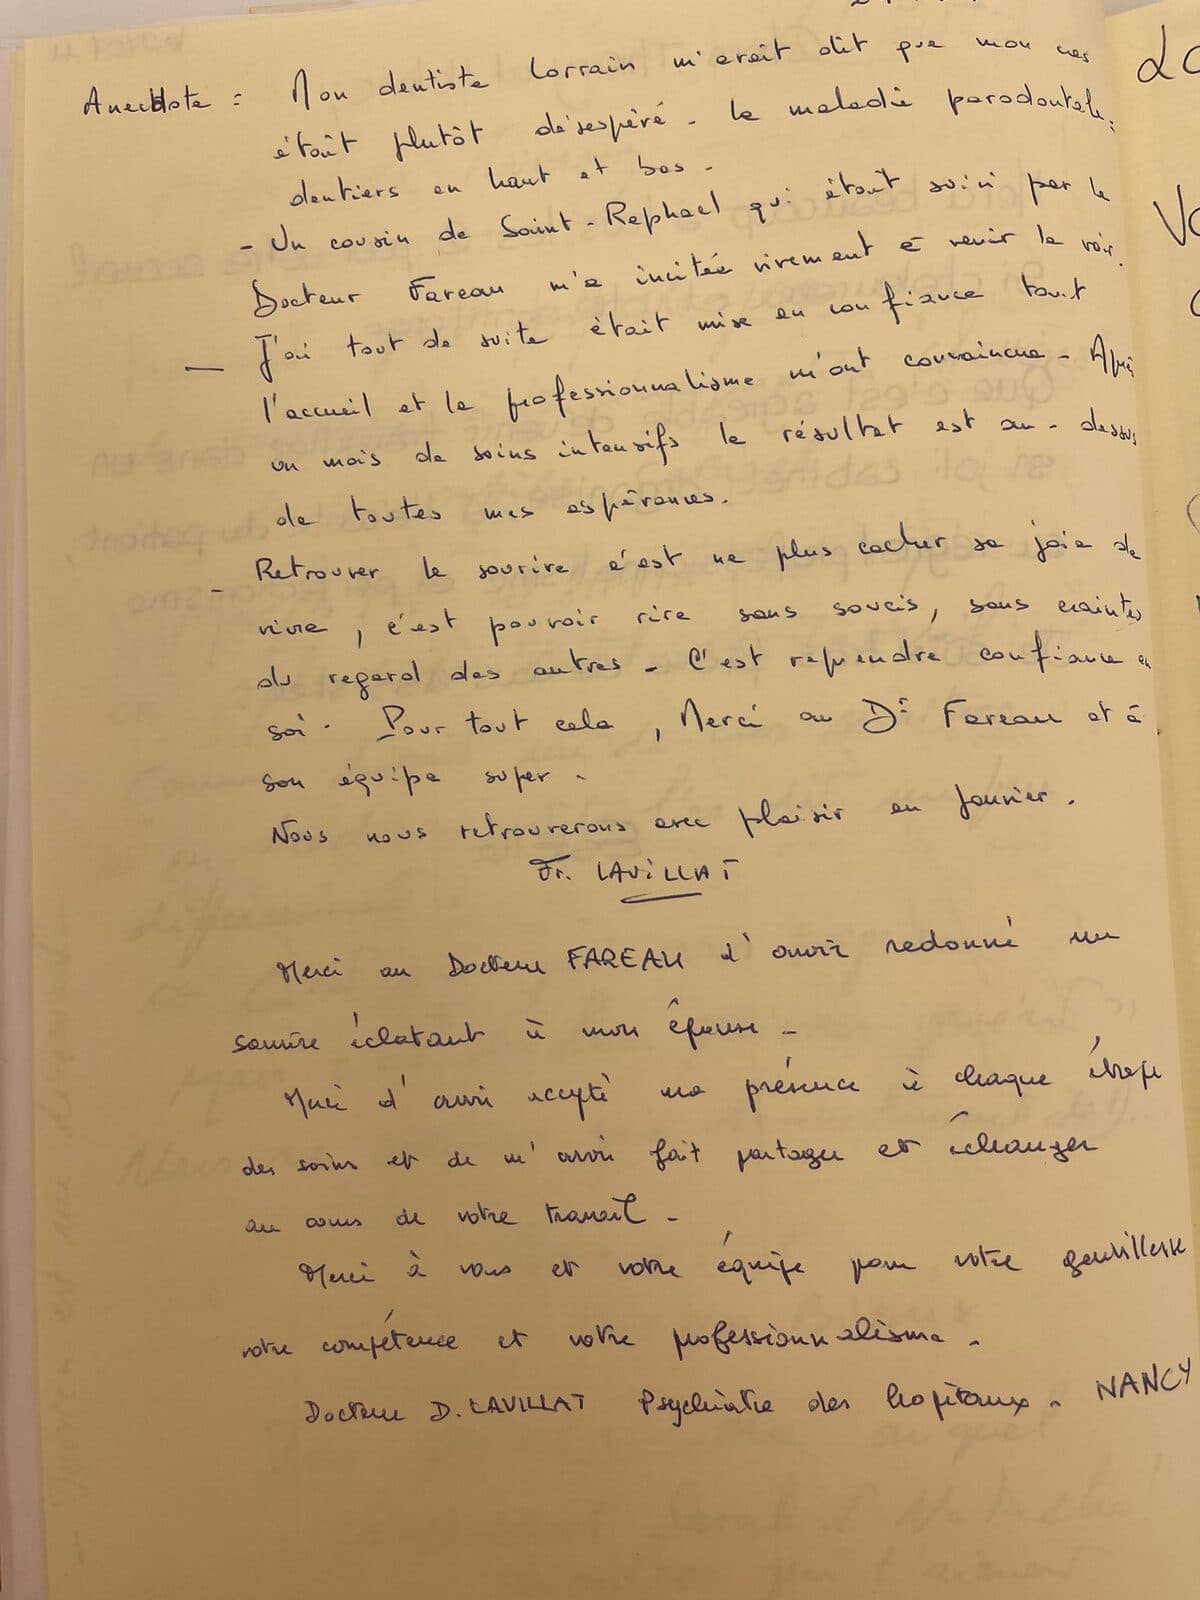 Anecdote : Mon dentiste Lorrain m'avait dit que mon cas
était plutôt désespéré - la maladie parodontale :
dentiers en haut et bas -
- Un cousin de Saint-Raphael qui était suivi par le
Docteur Fareau m'a incitée vivement à venir le voir.
— J'ai tout de suite était mise en confiance tant
l'accueil et le professionnalisme m'ont convaincue - Après
un mois de soins intensifs le résultat est au-dessus
de toutes mes espérances.
- Retrouver le sourire c'est ne plus cacher sa joie de
vivre, c'est pouvoir rire sans soucis, sans craintes
du regard des autres - C'est reprendre confiance en
soi. Pour tout cela, Merci au Dr Fareau et à
son équipe super.
Nous nous retrouverons avec plaisir en Janvier.
Fr. LAVILLAT
Merci au Docteur FAREAU d'avoir redonné un
sourire éclatant à mon épouse -
Merci d'avoir accepté ma présence à chaque étape
des soins et de m'avoir fait partager et échanger
au cours de votre travail -
Merci à vous et votre équipe pour votre gentillesse
votre compétence et votre professionnalisme.
Docteur D. LAVILLAT Psychiatre des hopitaux - NANCY